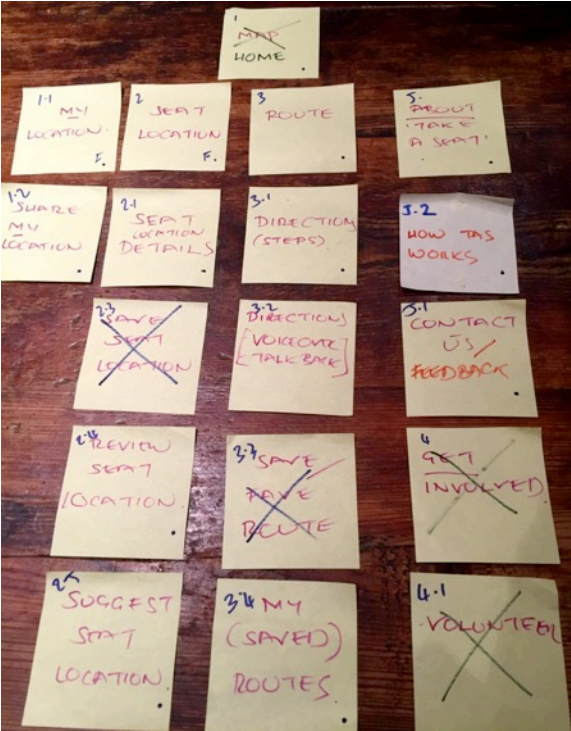 1
MAP
HOME
1.1
MY
LOCATION.
F.
2
SEAT
LOCATION
F.
3
ROUTE
5.
ABOUT
'TAKE
A SEAT'
1.2
SHARE
MY
LOCATION
2.1
SEAT
LOCATION
DETAILS
3.1
DIRECTION
(STEPS)
5.2
HOW TAS
WORKS
2.3
SAVE
SEAT
LOCATION
3.2
DIRECTIONS
[VOICEOVER
TALKBACK]
5.1
CONTACT
US/
FEEDBACK
2.4
REVIEW
SEAT
LOCATION
3.3
SAVE/
FAVE
ROUTE
4
GET
INVOLVED
SUGGEST
SEAT
LOCATION
3.4 MY
(SAVED)
ROUTES
4.1
VOLUNTEER